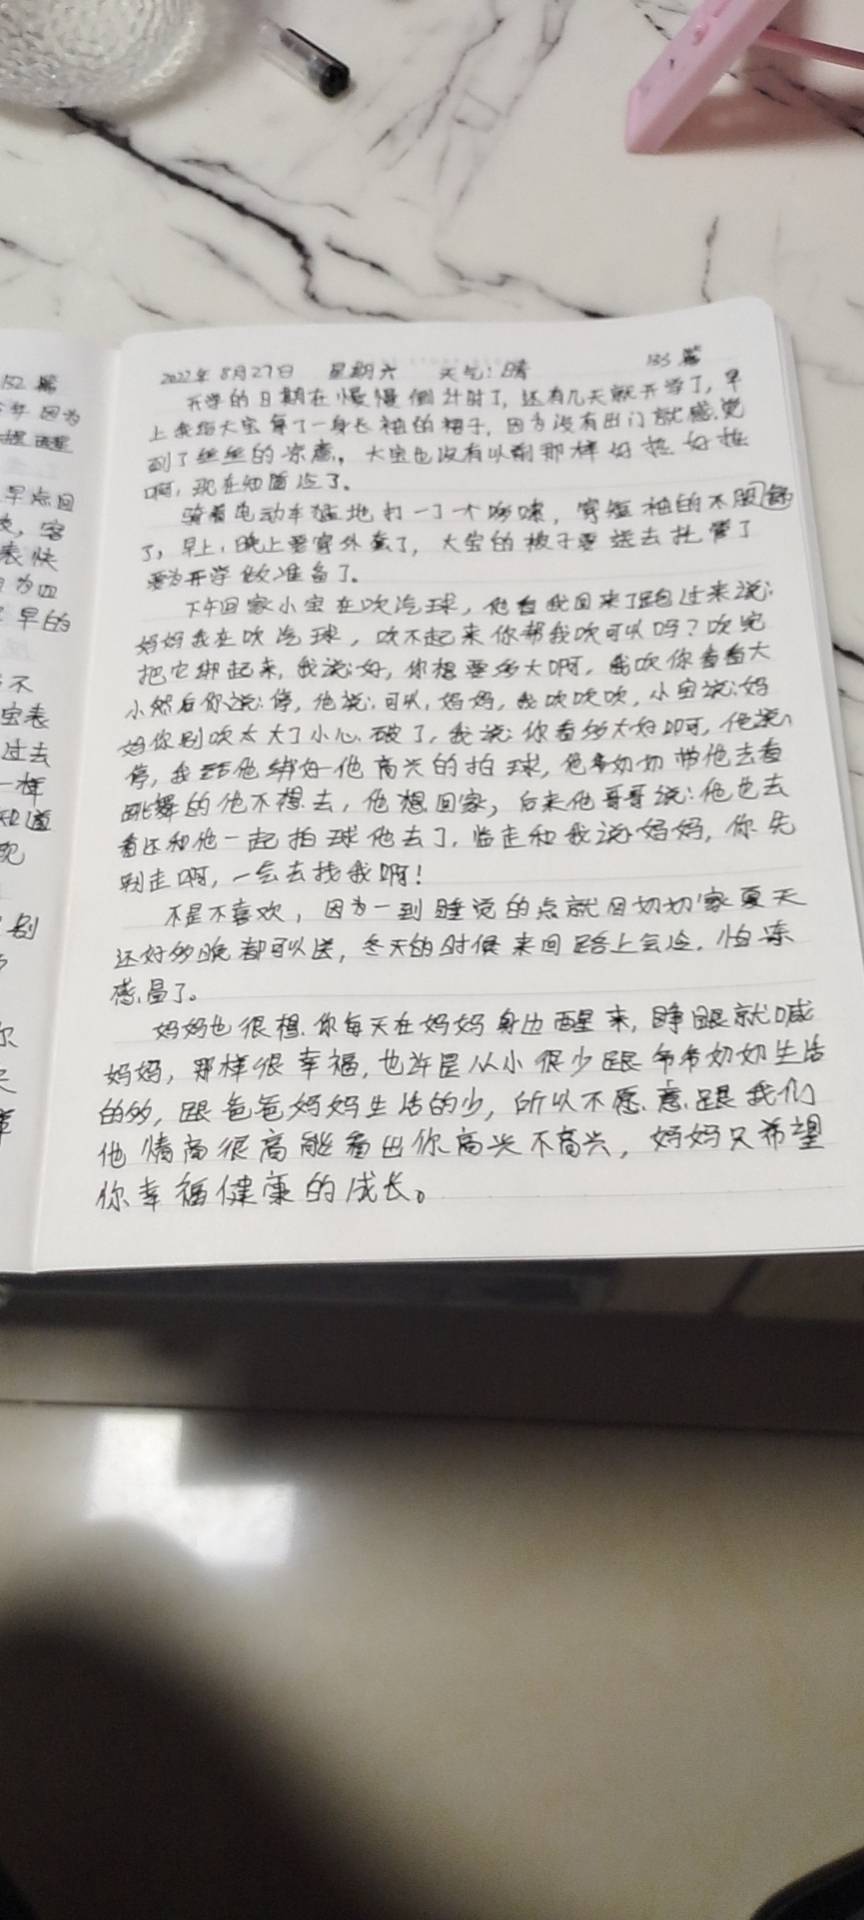 2022年8月27日 星期六 天气:晴 133篇
开学的日期在慢慢倒计时了,还有几天就开学了,早
上我给大宝穿了一身长袖的裙子,因为没有出门就感觉
到了丝丝的凉意,大宝也没有以前那样好热好热
啊,现在知道冷了。
骑着电动车猛地打一了个哆嗦,穿短袖的不服
了,早上,晚上要穿外套了,大宝的被子要送去托管了
要为开学做准备了。
下午回家小宝在吹汽球,他看我回来了跑过来说:
妈妈我在吹汽球,吹不起来你帮我吹可以吗?吹完
把它绑起来,我说:好,你想要多大啊,我吹你看看大
小然后你说:停,他说:可以,妈妈,我吹吹吹,小宝说:妈
妈你别吹太大了小心破了,我说:你看多大好即可,他说
停,我给他绑好他高兴的拍球,他爷奶奶带他去看
跳舞的他不想去,他想回家,后来他哥哥说:他也去
看还和他一起拍球他去了,临走和我说妈妈,你先
别走啊,一会去找我啊!
不是不喜欢,因为一到睡觉的点就回奶奶家夏天
还好多晚都可以送,冬天的时候来回路上会冷,怕冻
感冒了。
妈妈也很想你每天在妈妈身边醒来,睁眼就喊
妈妈,那样很幸福,也许是从小很少跟爷爷奶奶生活
的多,跟爸爸妈妈生活的少,所以不愿意跟我们
他情商很高能看出你高兴不高兴,妈妈只希望
你幸福健康的成长。
152篇
因为
早点回
表快
为四
早的
不
宝表
过去
一样
知道
别
你